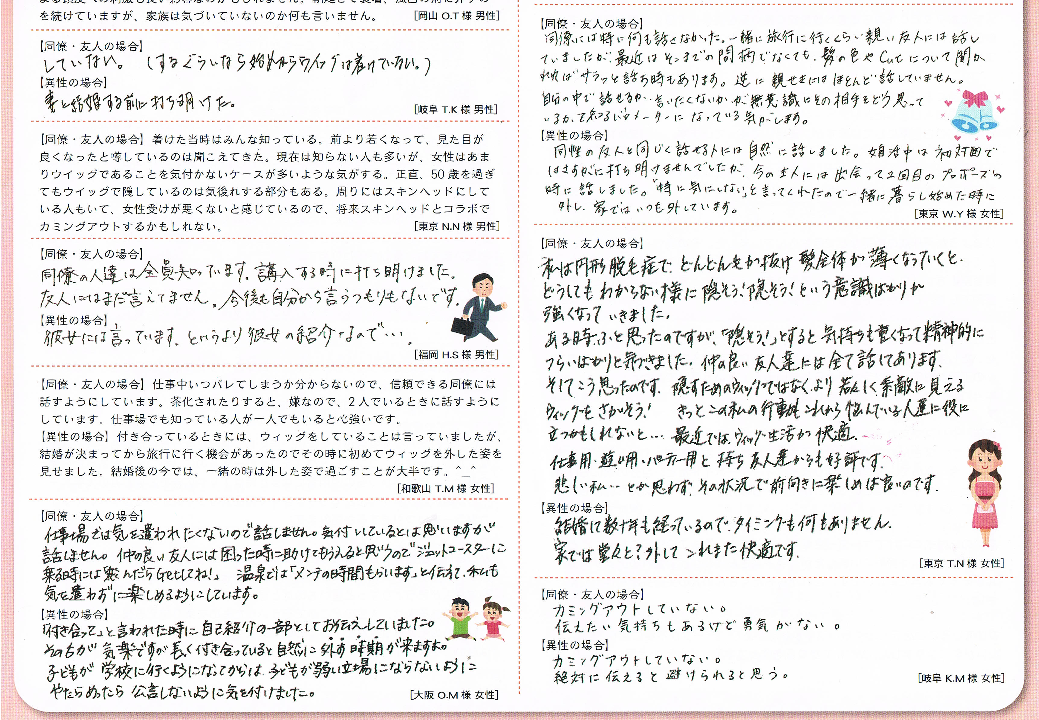 を続けていますが、家族は気づいていないのか何も言いません。 [岡山 O.T 様 男性]
【同僚・友人の場合】
していない。(するぐらいなら始めからウィッグは着けていない。)
【異性の場合】
妻と結婚する前に打ち明けた。
[岐阜 T.K 様 男性]
【同僚・友人の場合】着けた当時はみんな知っている。前より若くなって、見た目が
良くなったと噂しているのは聞こえてきた。現在は知らない人も多いが、女性はあま
りウイッグであることを気付かないケースが多いような気がする。正直、50歳を過ぎ
てもウイッグで隠しているのは気後れする部分もある。周りにはスキンヘッドにして
いる人もいて、女性受けが悪くないと感じているので、将来スキンヘッドとコラボで
カミングアウトするかもしれない。 [東京 N.N 様 男性]
【同僚・友人の場合】
同僚の人達は全員知っています。購入する時に打ち明けました。
友人にはまだ言えてません。今後も自分から言うつもりもないです。
【異性の場合】
彼女には言っています。というより彼女の紹介なので…。
[福岡 H.S 様 男性]
【同僚・友人の場合】仕事中いつバレてしまうか分からないので、信頼できる同僚には
話すようにしています。茶化されたりすると、嫌なので、2人でいるときに話すように
しています。仕事場でも知っている人が一人でもいると心強いです。
【異性の場合】付き合っているときには、ウィッグをしていることは言っていましたが、
結婚が決まってから旅行に行く機会があったのでその時に初めてウィッグを外した姿を
見せました。結婚後の今では、一緒の時は外した姿で過ごすことが大半です。^_^
[和歌山 T.M 様 女性]
【同僚・友人の場合】
仕事場では気を遣われたくないので話しません。気付いているとは思いますが
話しません。仲の良い友人には困った時に助けてもらえると思うので「ジェットコースターに
乗る時には飛んだらGetしてね!」 温泉では「メンテの時間もらいます」と伝えて、私も
気を遣わずに楽しめるようにしています。
【異性の場合】
「付き合って」と言われた時に自己紹介の一部としてお伝えしていました。
そのもが気楽ですが長く付き合っていると自然に外す時期が来ますよ。
子どもが学校に行くようになってからは、子どもが弱い立場にならないように
やたらめたら公言しないように気を付けました。
[大阪 O.M 様 女性]
【同僚・友人の場合】
同僚には特に何も話さなかった。一緒に旅行に行くくらい親しい友人には話し
ていましたが、最近はそこまでの間柄でなくても、髪の色やCutについて聞か
れればサラッと話す時もあります。逆に親せきにはほとんど話していません。
自分の中で話せるか、言いたくないかが無意識にその相手をどう思って
いるかって知るバロメーターになっている気がします。
【異性の場合】
同性の友人と同じく話せる人には自然に話しました。婚活中は初対面で
はさすがに打ち明けませんでしたが、今の主人には出会って2回目のプロポーズの
時に話しました。「特に気にしない」と言ってくれたので一緒に暮らし始めた時に
外し、家ではいつも外しています。
[東京 W.Y 様 女性]
【同僚・友人の場合】
私は円形脱毛症で、どんどん毛が抜け髪全体が薄くなっていくと、
どうしてもわからない様に隠そう!隠そう!という意識ばかりが
強くなっていきました。
ある時、ふと思ったのですが、「隠そう!」とすると気持ちも重くなって精神的に
つらいばかりと気づきました。仲の良い友人達には全て話してあります。
そしてこう思ったのです。隠すためのウィッグではなく、より若々しく素敵に見える
ウィッグをさがそう! きっとこの私の行動もこれから悩んでいる人達に役に
立つかもしれないと… 最近では、ウィッグ生活が快適。
仕事用・遊び用・パーティー用と持ち友人達からも好評です。
悲しい私…とか思わず、その状況で前向きに楽しめば良いのです。
【異性の場合】
結婚して数十年も経っているので、タイミングも何もありません。
家では堂々と?外して これまた快適です。
[東京 T.N 様 女性]
【同僚・友人の場合】
カミングアウトしていない。
伝えたい気持ちもあるけど勇気がない。
【異性の場合】
カミングアウトしていない。
絶対に伝えると避けられると思う。
[岐阜 K.M 様 女性]